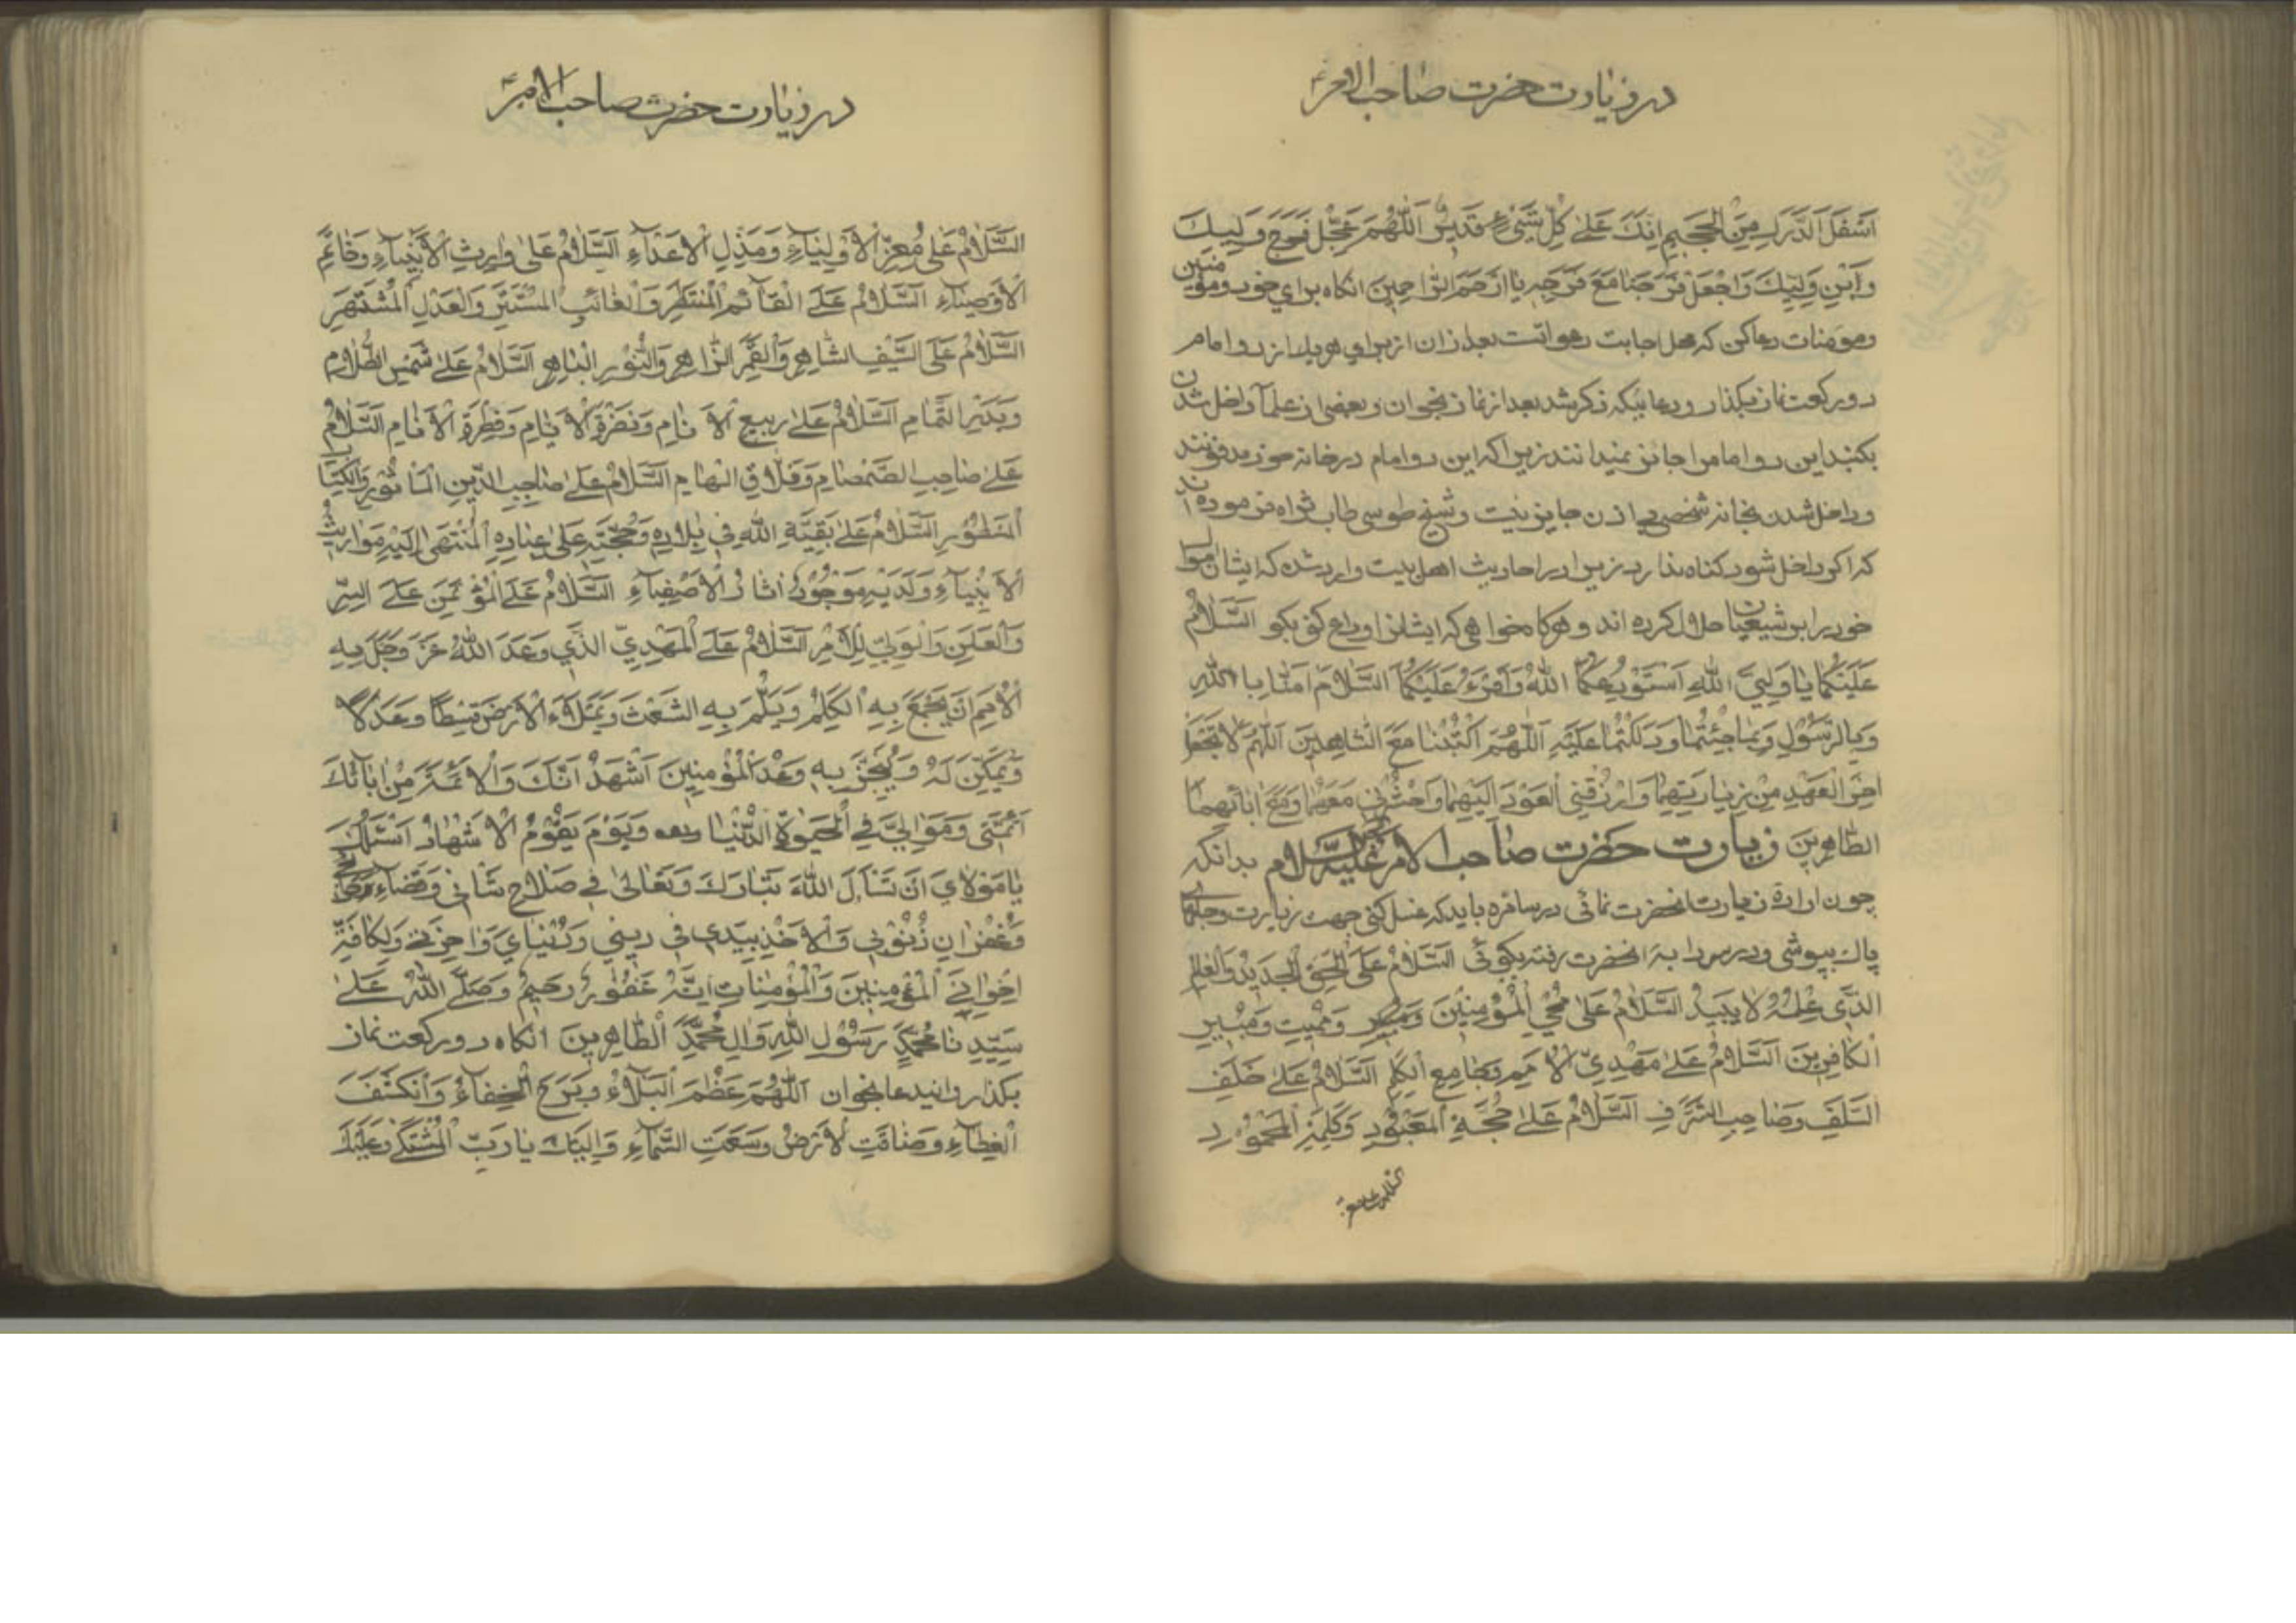 در زیارت حضرت صاحب الامر ع
اَسْفَلَ الدَّرَكِ مِنَ الْجَحِيمِ اِنَّكَ عَلىٰ كُلِّ شَيْءٍ قَدِيرٌ اَللّٰهُمَّ عَجِّلْ فَرَجَ وَلِيِّكَ
وَابْنِ وَلِيِّكَ وَاجْعَلْ فَرَجَنَا مَعَ فَرَجِهِ يَا اَرْحَمَ الرَّاحِمِينَ انكاه براي خود و مؤمنين
و مؤمنات دعا كن كه محل اجابت دعواتست بعد از ان از براي هر يك از دو امام
دو ركعت نماز بكذار و دعائيكه ذكر شد بعد از نماز بخوان و بعضى از علما داخل شدن
بكنبد اين دو امام را جائز نميدانند زيرا كه اين دو امام در خانه خود مدفونند
و داخل شدن بخانه شخصى بى اذن جايز نيست و شيخ طوسى طاب ثراه فرموده اند
كه اكر داخل شود كناه ندارد زيرا در احاديث اهل بيت وارد شده كه ايشان اموال
خود را بر شيعيان حلال كرده اند و هركاه خواهى كه ايشان را وداع كنى بكو اَلسَّلَامُ
عَلَيْكُمَا يَا وَلِيَّيِ اللّٰهِ اَسْتَوْدِعُكُمَا اللّٰهَ وَاَقْرَءُ عَلَيْكُمَا السَّلَامَ اٰمَنَّا بِاللّٰهِ
وَبِالرَّسُولِ وَبِمَا جِئْتُمَا وَدَلَلْتُمَا عَلَيْهِ اَللّٰهُمَّ اكْتُبْنَا مَعَ الشَّاهِدِينَ اَللّٰهُمَّ لَا تَجْعَلْهُ
اٰخِرَ الْعَهْدِ مِنْ زِيَارَتِهِمَا وَارْزُقْنِي الْعَوْدَ اِلَيْهِمَا وَاحْشُرْنِي مَعَهُمَا وَمَعَ اٰبَائِهِمَا
الطَّاهِرِينَ زيارت حضرت صاحب الامر عليه السلام بدانكه
چون اراده زيارت انحضرت نمائى در سامره بايد كه غسل كنى جهت زيارت و جامهاى
پاك بپوشى و در سردابه انحضرت رفته بكوئى اَلسَّلَامُ عَلَى الْحَقِّ الْجَدِيدِ وَالْعَالِمِ
الَّذِي عِلْمُهُ لَا يَبِيدُ السَّلَامُ عَلىٰ مُحْيِي الْمُؤْمِنِينَ وَمُمِيتِ وَمُبِيرِ
الْكَافِرِينَ السَّلَامُ عَلىٰ مَهْدِيِّ الْاُمَمِ وَجَامِعِ الْكَلِمِ السَّلَامُ عَلىٰ خَلَفِ
السَّلَفِ وَصَاحِبِ الشَّرَفِ السَّلَامُ عَلىٰ حُجَّةِ الْمَعْبُودِ وَكَلِمَةِ الْمَحْمُودِ
در زیارت حضرت صاحب الامر ع
السَّلَامُ عَلىٰ مُعِزِّ الْاَوْلِيَاءِ وَمُذِلِّ الْاَعْدَاءِ السَّلَامُ عَلىٰ وَارِثِ الْاَنْبِيَاءِ وَخَاتَمِ
الْاَوْصِيَاءِ السَّلَامُ عَلَى الْقَائِمِ الْمُنْتَظَرِ وَالْغَائِبِ الْمُسْتَتِرِ وَالْعَدْلِ الْمُشْتَهَرِ
السَّلَامُ عَلَى السَّيْفِ الشَّاهِرِ وَالْقَمَرِ الزَّاهِرِ وَالنُّورِ الْبَاهِرِ السَّلَامُ عَلىٰ شَمْسِ الظَّلَامِ
وَبَدْرِ التَّمَامِ السَّلَامُ عَلىٰ رَبِيعِ الْاَنَامِ وَنَضْرَةِ الْاَيَّامِ وَفِطْرَةِ الْاَنَامِ السَّلَامُ
عَلىٰ صَاحِبِ الصَّمْصَامِ وَفَلَّاقِ الْهَامِ السَّلَامُ عَلىٰ صَاحِبِ الدِّينِ الْمَأْثُورِ وَالْكِتَابِ
الْمَسْطُورِ السَّلَامُ عَلىٰ بَقِيَّةِ اللّٰهِ فِي بِلَادِهِ وَحُجَّتِهِ عَلىٰ عِبَادِهِ الْمُنْتَهىٰ اِلَيْهِ مَوَارِيثُ
الْاَنْبِيَاءِ وَلَدَيْهِ مَوْجُودٌ اٰثَارُ الْاَصْفِيَاءِ السَّلَامُ عَلَى الْمُؤْتَمَنِ عَلَى السِّرِّ
وَالْعَلَنِ وَالْوَلِيِّ لِلْاَمْرِ السَّلَامُ عَلَى الْمَهْدِيِّ الَّذِي وَعَدَ اللّٰهُ عَزَّ وَجَلَّ بِهِ
الْاُمَمَ اَنْ يَجْمَعَ بِهِ الْكَلِمَ وَيَلُمَّ بِهِ الشَّعَثَ وَيَمْلَاَءَ الْاَرْضَ قِسْطًا وَعَدْلًا
وَيُمَكِّنَ لَهُ وَيُنْجِزَ بِهِ وَعْدَ الْمُؤْمِنِينَ اَشْهَدُ اَنَّكَ وَالْاَئِمَّةَ مِنْ اٰبَائِكَ
اَئِمَّتِي وَمَوَالِيَّ فِي الْحَيٰوةِ الدُّنْيَا وَيَوْمَ يَقُومُ الْاَشْهَادُ اَسْئَلُكَ
يَا مَوْلَايَ اَنْ تَسْأَلَ اللّٰهَ تَبَارَكَ وَتَعَالىٰ فِي صَلَاحِ شَانِي وَقَضَاءِ حَوَائِجِي
وَغُفْرَانِ ذُنُوبِي وَالْاَخْذِ بِيَدِي فِي دِينِي وَدُنْيَايَ وَاٰخِرَتِي وَلِكَافَّةِ
اِخْوَانِيَ الْمُؤْمِنِينَ وَالْمُؤْمِنَاتِ اِنَّهُ غَفُورٌ رَحِيمٌ وَصَلَّى اللّٰهُ عَلىٰ
سَيِّدِنَا مُحَمَّدٍ رَسُولِ اللّٰهِ وَاٰلِ مُحَمَّدٍ الطَّاهِرِينَ انكاه دو ركعت نماز
بكذار و انيدعا بخوان اَللّٰهُمَّ عَظُمَ الْبَلَاءُ وَبَرِحَ الْخِفَاءُ وَانْكَشَفَ
الْغِطَاءِ وَضَاقَتِ الْاَرْضُ وَسَعَتِ السَّمَاءِ وَاِلَيْكَ يَا رَبِّ الْمُشْتَكىٰ وَعَلَيْكَ